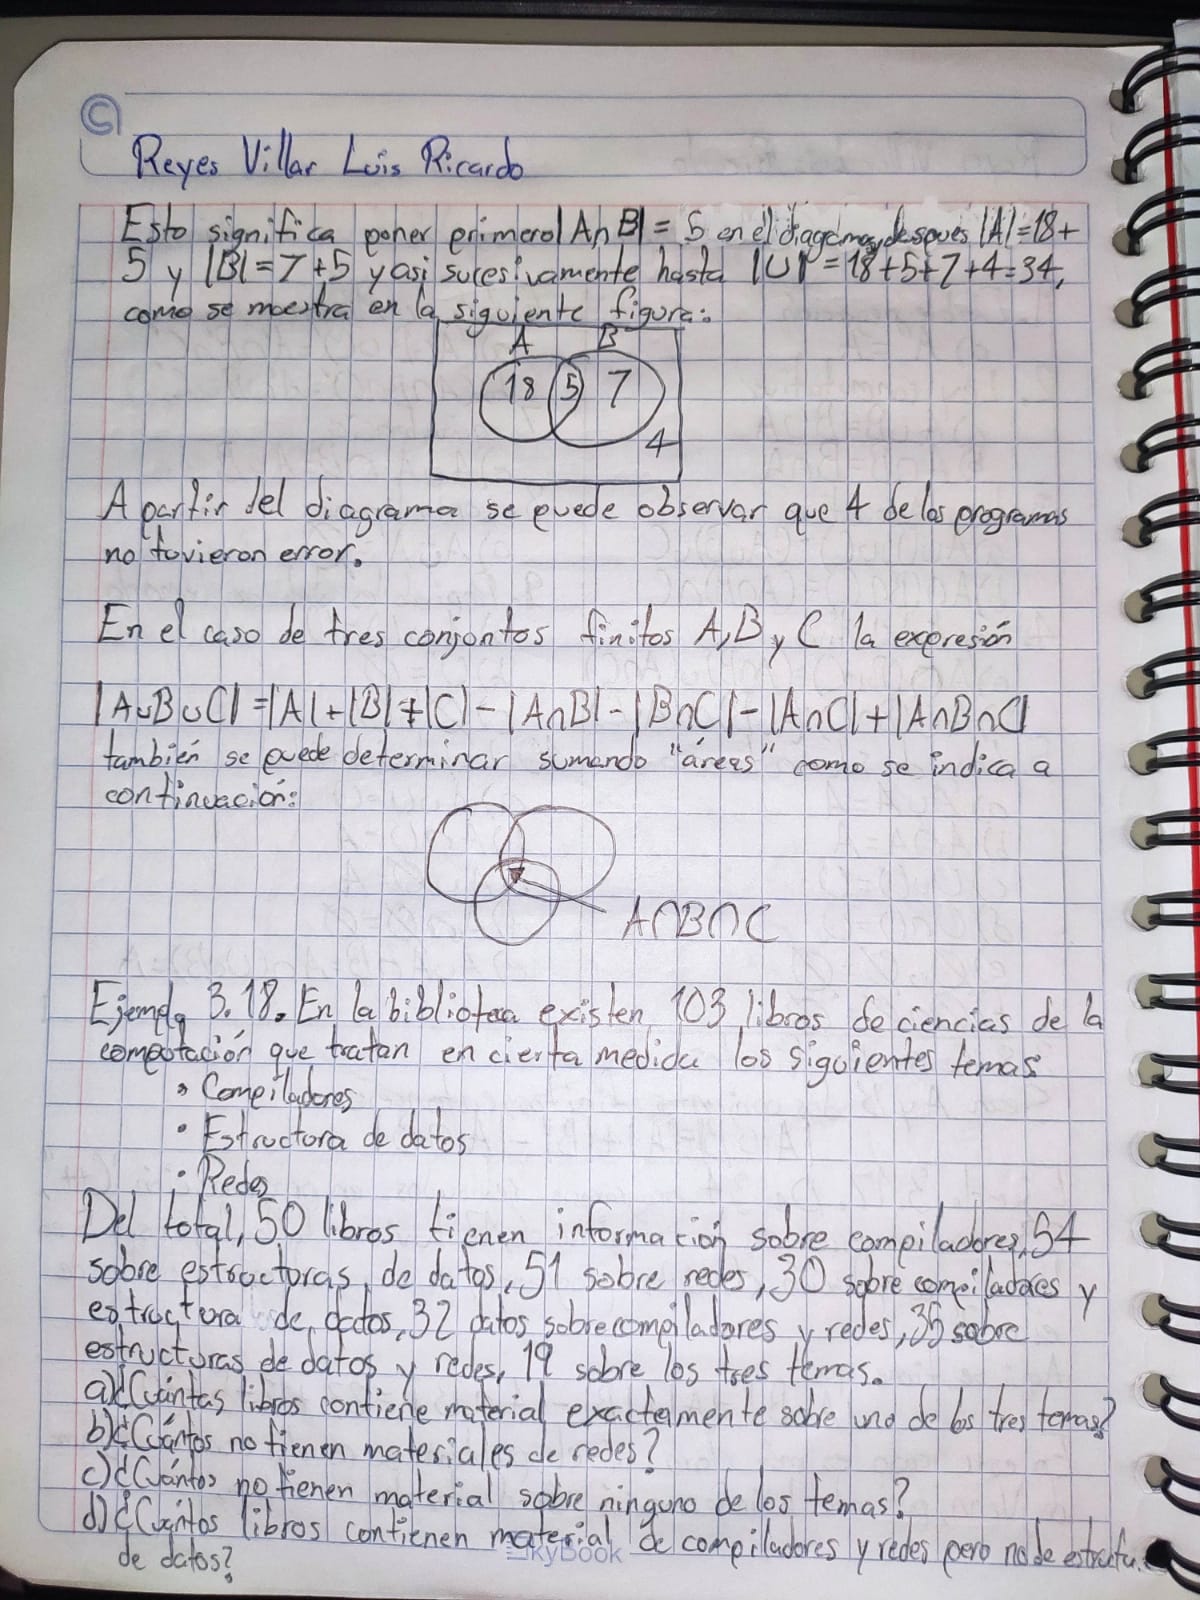 Reyes Villar Luis Ricardo
Esto significa poner primero |A∩B| = 5 en el diagrama, despues |A|=18+
5 y |B|=7+5 y asi sucesivamente hasta |U|=18+5+7+4=34,
como se muestra en la siguiente figura:
A B
18 5 7
4
A partir del diagrama se puede observar que 4 de los programas
no tuvieron error.
En el caso de tres conjuntos finitos A, B y C la expresión
|A∪B∪C|=|A|+|B|+|C|-|A∩B|-|B∩C|-|A∩C|+|A∩B∩C|
también se puede determinar sumando "áreas" como se indica a
continuación:
A∩B∩C
Ejemplo 3.18. En la biblioteca existen 103 libros de ciencias de la
computación que tratan en cierta medida los siguientes temas
• Compiladores
• Estructura de datos
• Redes
Del total, 50 libros tienen información sobre compiladores, 54
sobre estructuras de datos, 51 sobre redes, 30 sobre compiladores y
estructura de datos, 32 datos sobre compiladores y redes, 35 sobre
estructuras de datos y redes, 19 sobre los tres temas.
a) ¿Cuántas libros contiene material exactamente sobre uno de los tres temas?
b) ¿Cuántos no tienen materiales de redes?
c) ¿Cuántos no tienen material sobre ninguno de los temas?
d) ¿Cuántos libros contienen material de compiladores y redes pero no de
de datos?